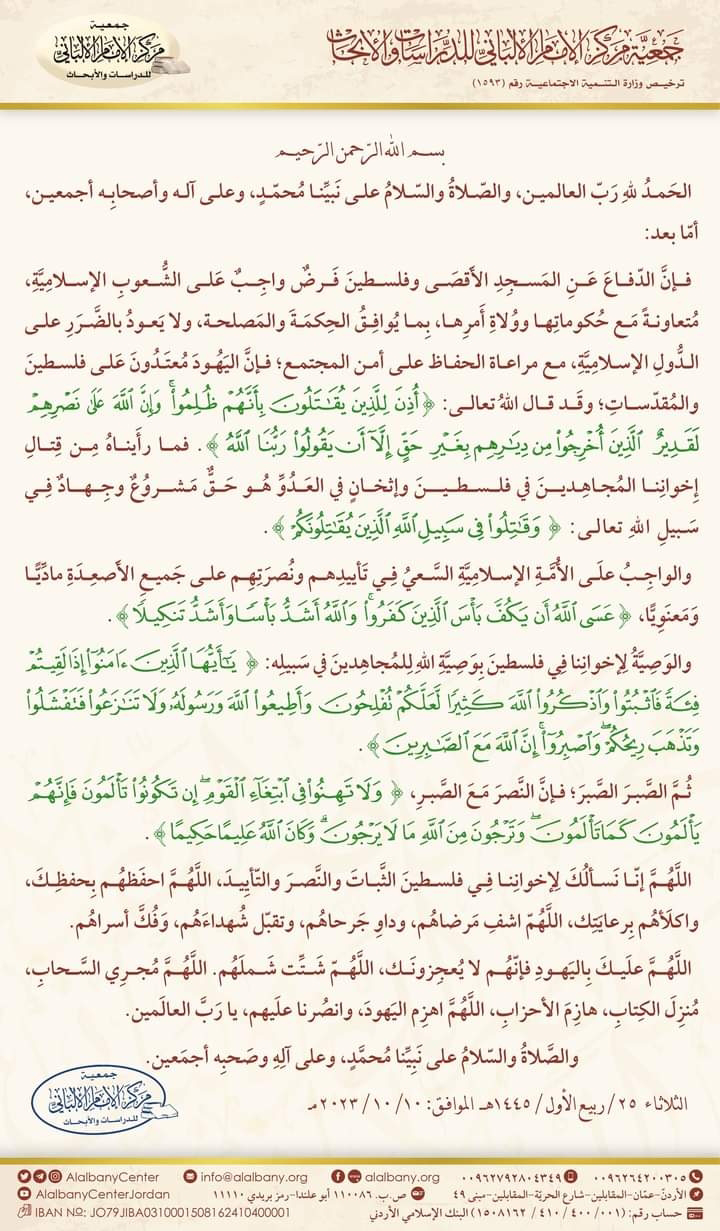 جمعية
مركز الإمام الألباني
للدراسات والأبحاث
جمعية مركز الإمام الألباني للدراسات والأبحاث
ترخيص وزارة التنمية الاجتماعية رقم (١٥٩٣)
بسم الله الرّحمن الرّحيم
الحَمدُ للهِ رَبّ العالمين، والصّلاةُ والسّلامُ على نَبيِّنا مُحمّدٍ، وعلى آله وأصحابِه أجمعين،
أمّا بعد:
فإنَّ الدّفاعَ عَنِ المَسجِدِ الأَقصَى وفلسطينَ فَرضٌ واجِبٌ عَلى الشُّعوبِ الإسلاميَّةِ،
مُتعاونةً مَع حُكوماتِها ووُلاةِ أَمرِها، بِما يُوافِقُ الحِكمَةَ والمَصلحة، ولا يَعودُ بالضَّرَرِ على
الدُّولِ الإسلاميَّةِ، مع مراعاة الحفاظ على أمن المجتمع؛ فإنَّ اليَهُودَ مُعتَدُونَ عَلى فلسطينَ
والمُقدّساتِ؛ وقَد قال اللهُ تعالى: ﴿أُذِنَ لِلَّذِينَ يُقَٰتَلُونَ بِأَنَّهُمۡ ظُلِمُواْۚ وَإِنَّ ٱللَّهَ عَلَىٰ نَصۡرِهِمۡ
لَقَدِيرٌ ٱلَّذِينَ أُخۡرِجُواْ مِن دِيَٰرِهِم بِغَيۡرِ حَقٍّ إِلَّآ أَن يَقُولُواْ رَبُّنَا ٱللَّهُ﴾. فما رأَيناهُ مِن قِتالِ
إخوانِنا المُجاهِدينَ في فلسطينَ وإثخانٍ في العَدُوِّ هُو حَقٌّ مَشروعٌ وجِهادٌ فِي
سَبيلِ اللهِ تعالى: ﴿وَقَٰتِلُواْ فِي سَبِيلِ ٱللَّهِ ٱلَّذِينَ يُقَٰتِلُونَكُمۡ﴾.
والواجِبُ علَى الأُمَّةِ الإسلاميَّةِ السَّعيُ فِي تَأييدِهم ونُصرَتِهِم على جَميعِ الأَصعِدَةِ مادِّيًّا
وَمَعنَويًّا، ﴿عَسَى ٱللَّهُ أَن يَكُفَّ بَأۡسَ ٱلَّذِينَ كَفَرُواْۚ وَٱللَّهُ أَشَدُّ بَأۡسٗا وَأَشَدُّ تَنكِيلٗا﴾.
والوَصِيَّةُ لِإخوانِنا فِي فلسطينَ بِوَصِيَّةِ اللهِ لِلمُجاهدينَ في سَبيلِه: ﴿يَٰٓأَيُّهَا ٱلَّذِينَ ءَامَنُوٓاْ إِذَا لَقِيتُمۡ
فِئَةٗ فَٱثۡبُتُواْ وَٱذۡكُرُواْ ٱللَّهَ كَثِيرٗا لَّعَلَّكُمۡ تُفۡلِحُونَ وَأَطِيعُواْ ٱللَّهَ وَرَسُولَهُۥ وَلَا تَنَٰزَعُواْ فَتَفۡشَلُواْ
وَتَذۡهَبَ رِيحُكُمۡۖ وَٱصۡبِرُوٓاْۚ إِنَّ ٱللَّهَ مَعَ ٱلصَّٰبِرِينَ﴾.
ثُمَّ الصَّبرَ الصَّبرَ؛ فإنَّ النَّصرَ مَعَ الصَّبرِ، ﴿وَلَا تَهِنُواْ فِي ٱبۡتِغَآءِ ٱلۡقَوۡمِۖ إِن تَكُونُواْ تَأۡلَمُونَ فَإِنَّهُمۡ
يَأۡلَمُونَ كَمَا تَأۡلَمُونَۖ وَتَرۡجُونَ مِنَ ٱللَّهِ مَا لَا يَرۡجُونَۗ وَكَانَ ٱللَّهُ عَلِيمًا حَكِيمًا﴾.
اللَّهُمَّ إنّا نَسألُكَ لِإخوانِنا فِي فلسطينَ الثَّباتَ والنَّصرَ والتّأييدَ، اللَّهُمَّ احفَظهُم بِحفظِكَ،
واكلَأهُم بِرعايَتِكَ، اللَّهُمّ اشفِ مَرضاهُم، وداوِ جَرحاهُم، وتقبّل شُهداءَهُم، وَفُكَّ أسراهُم.
اللَّهُمَّ عَلَيكَ بِاليَهودِ فإنّهُم لا يُعجِزونَكَ، اللَّهُمّ شَتِّت شَملَهُم. اللَّهُمَّ مُجرِي السَّحابِ،
مُنزِلَ الكِتابِ، هازِمَ الأحزابِ، اللَّهُمَّ اهزِمِ اليَهودَ، وانصُرنا علَيهِم، يا رَبَّ العالَمين.
والصَّلاةُ والسّلامُ على نَبيِّنا مُحمَّدٍ، وعلى آلِهِ وصَحبِه أجمَعين.
الثلاثاء ٢٥/ربيع الأول/١٤٤٥هـ الموافق: ١٠/١٠/٢٠٢٣مـ
جمعية
مركز الإمام الألباني
للدراسات والأبحاث
٠٠٩٦٢٦٤٢٠٠٣٠٥ ٠٠٩٦٢٧٩٢٨٠٤٣٤٩ alalbany.org info@alalbany.org AlalbanyCenter
الأردن-عمّان-المقابلين-شارع الحريّة-المقابلين-مبنى ٤٩ ص.ب. ١١٠٠٨٦ أبو علندا-رمز بريدي ١١١١٠ AlalbanyCenterJordan
حساب رقم: (٠٠١/ ٤٠٠/ ٤١٠/ ١٥٠٨١٦٢) البنك الإسلامي الأردني IBAN No: JO79JIBA0310001508162410400001